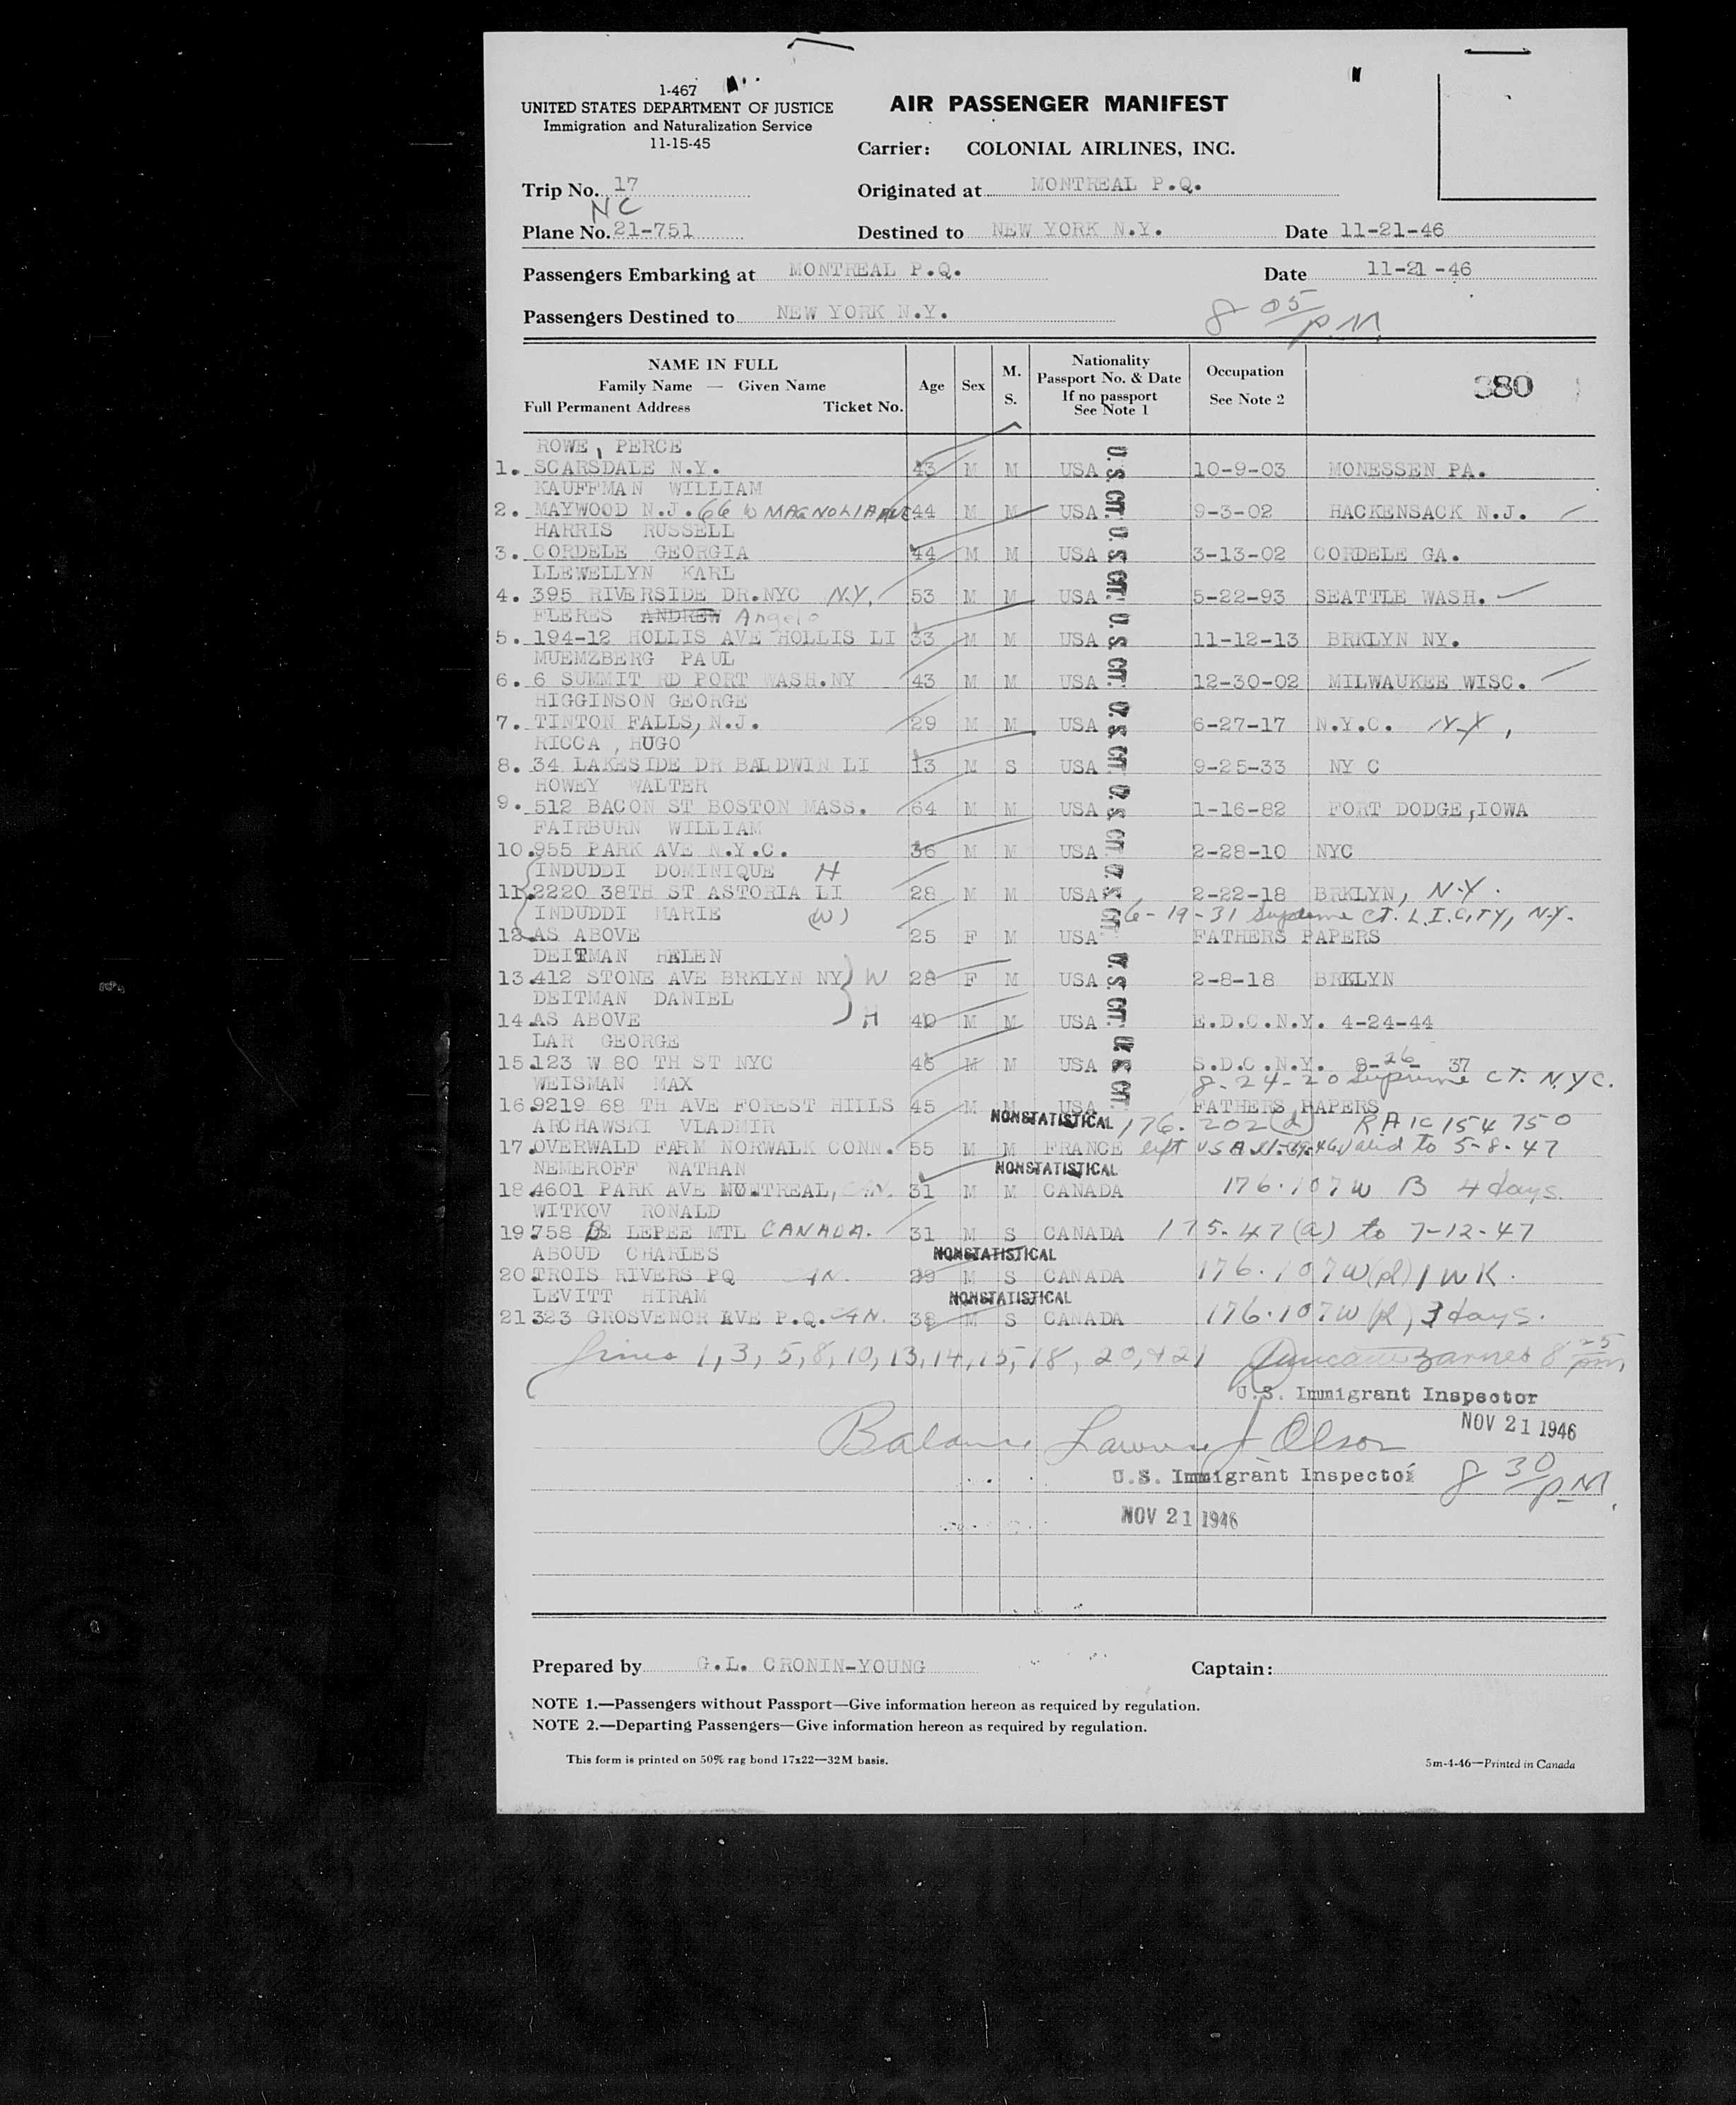 1-467
UNITED STATES DEPARTMENT OF JUSTICE
Immigration and Naturalization Service
11-15-45
AIR PASSENGER MANIFEST
Carrier: COLONIAL AIRLINES, INC.
Trip No. 17
Originated at MONTREAL P.Q.
NC
Plane No. 21-751
Destined to NEW YORK N.Y.
Date 11-21-46
Passengers Embarking at MONTREAL P.Q.
Date 11-21-46
Passengers Destined to NEW YORK N.Y.
8 05 PM
NAME IN FULL
Family Name — Given Name
Full Permanent Address Ticket No.
Age
Sex
M.
S.
Nationality
Passport No. & Date
If no passport
See Note 1
Occupation
See Note 2
380
ROWE, PERCE
1. SCARSDALE N.Y. 43 M M USA U.S. CIT. 10-9-03 MONESSEN PA.
KAUFFMAN WILLIAM
2. MAYWOOD N.J. 66 W MAGNOLIA AVE 44 M M USA 9-3-02 HACKENSACK N.J.
HARRIS RUSSELL
3. CORDELE GEORGIA 44 M M USA U.S. CIT. 3-13-02 CORDELE GA.
LLEWELLYN KARL
4. 395 RIVERSIDE DR.NYC N.Y. 53 M M USA 5-22-93 SEATTLE WASH.
FLERES ANDREW Angelo
5. 194-12 HOLLIS AVE HOLLIS LI 33 M M USA U.S. CIT. 11-12-13 BRKLYN NY.
MUEMZBERG PAUL
6. 6 SUMMIT RD PORT WASH.NY 43 M M USA 12-30-02 MILWAUKEE WISC.
HIGGINSON GEORGE
7. TINTON FALLS, N.J. 29 M M USA U.S. CIT. 6-27-17 N.Y.C. N.Y,
RICCA , HUGO
8. 34 LAKESIDE DR BALDWIN LI 13 M S USA 9-25-33 NY C
HOWEY WALTER
9. 512 BACON ST BOSTON MASS. 64 M M USA U.S. CIT. 1-16-82 FORT DODGE, IOWA
FAIRBURN WILLIAM
10. 955 PARK AVE N.Y.C. 36 M M USA 2-28-10 NYC
INDUDDI DOMINIQUE H
11. 2220 38TH ST ASTORIA LI 28 M M USA U.S. CIT. 2-22-18 BRKLYN, N.Y.
INDUDDI MARIE (W) 6-19-31 Supreme CT. L.I.CITY, N.Y.
12. AS ABOVE 25 F M USA FATHERS PAPERS
DEITMAN HELEN
13. 412 STONE AVE BRKLYN NY W 28 F M USA U.S. CIT. 2-8-18 BRKLYN
DEITMAN DANIEL
14. AS ABOVE H 40 M M USA E.D.C.N.Y. 4-24-44
LAR GEORGE
15. 123 W 80 TH ST NYC 46 M M USA U.S. CIT. S.D.C.N.Y. 8-26-37
WEISMAN MAX 8-24-20 Supreme CT. NYC.
16. 9219 68 TH AVE FOREST HILLS 45 M M USA FATHERS PAPERS
ARCHAWSKI VLADMIR NONSTATISTICAL 176.202(d) RA IC 154 750
17. OVERWALD FARM NORWALK CONN. 55 M M FRANCE left USA Valid to 5-8-47
NEMEROFF NATHAN NONSTATISTICAL
18. 4601 PARK AVE MONTREAL, CAN. 31 M M CANADA 176.107W B 4 days.
WITKOV RONALD
19. 758 DE LEPEE MTL CANADA. 31 M S CANADA 175.47(a) to 7-12-47
ABOUD CHARLES NONSTATISTICAL
20. TROIS RIVERS PQ CAN. 29 M S CANADA 176.107W(pl) 1 WK.
LEVITT HIRAM NONSTATISTICAL
21. 323 GROSVENOR AVE P.Q. CAN. 38 M S CANADA 176.107W pl, 3 days.
Lines 1, 3, 5, 8, 10, 13, 14, 15, 18, 20, & 21 Duncan Barnes 8 25 pm,
U.S. Immigrant Inspector
NOV 21 1946
Balance Lawrence J Olson
U.S. Immigrant Inspector 8 30 PM
NOV 21 1946
Prepared by G.L. CRONIN-YOUNG
Captain:
NOTE 1.—Passengers without Passport—Give information hereon as required by regulation.
NOTE 2.—Departing Passengers—Give information hereon as required by regulation.
This form is printed on 50% rag bond 17x22—32M basis.
5m-4-46—Printed in Canada